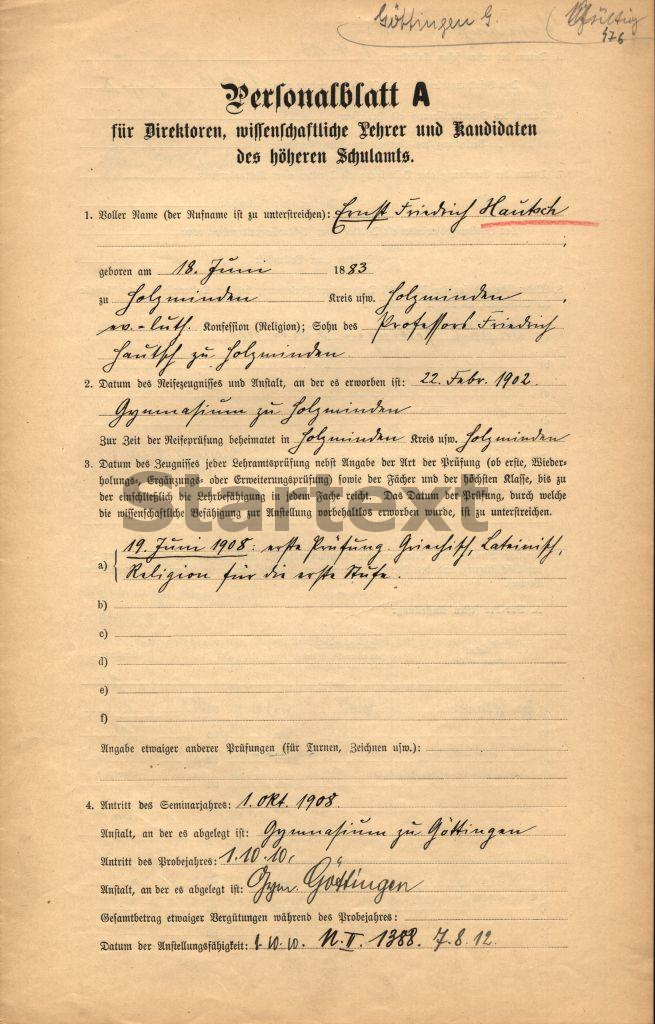 Göttingen G.
476
Personalblatt A
für Direktoren, wissenschaftliche Lehrer und Kandidaten
des höheren Schulamts.
1. Voller Name (der Rufname ist zu unterstreichen): Ernst Friedrich Hautsch
;
geboren am 18. Juni 1883
zu Holzminden Kreis usw. Holzminden,
ev.-luth. Konfession (Religion); Sohn des Professors Friedrich
Hautsch zu Holzminden.
2. Datum des Reifezeugnisses und Anstalt, an der es erworben ist: 22. Febr. 1902.
Gymnasium zu Holzminden
Zur Zeit der Reifeprüfung beheimatet in Holzminden Kreis usw. Holzminden
3. Datum des Zeugnisses jeder Lehramtsprüfung nebst Angabe der Art der Prüfung (ob erste, Wieder-
holungs-, Ergänzungs- oder Erweiterungsprüfung) sowie der Fächer und der höchsten Klasse, bis zu
der einschließlich die Lehrbefähigung in jedem Fache reicht. Das Datum der Prüfung, durch welche
die wissenschaftliche Befähigung zur Anstellung vorbehaltlos erworben wurde, ist zu unterstreichen.
Startext
a) 19. Juni 1908: erste Prüfung. Griechisch, Lateinisch,
Religion für die erste Stufe.
b)
c)
d)
e)
f)
Angabe etwaiger anderer Prüfungen (für Turnen, Zeichnen usw.):
4. Antritt des Seminarjahres: 1. Okt. 1908.
Anstalt, an der es abgelegt ist: Gymnasium zu Göttingen
Antritt des Probejahres: 1.10.10,
Anstalt, an der es abgelegt ist: Gym. Göttingen
Gesamtbetrag etwaiger Vergütungen während des Probejahres:
Datum der Anstellungsfähigkeit: 1.10.10. N. II. 1388. 7.8.12.